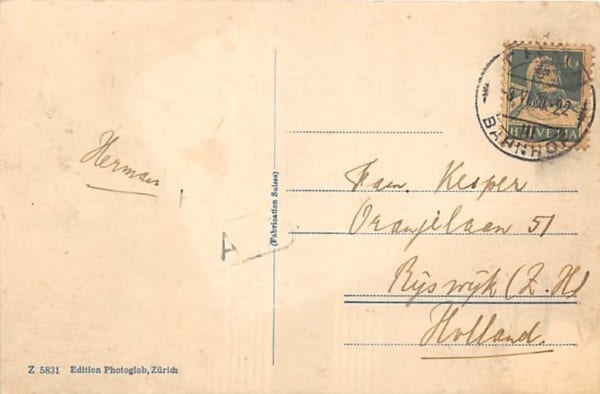 10
HELVETIA
BAHNHOF
Herman
A
Fam. Kesper
Oranjelaan 51
Rijswijk (Z. H)
Holland.
(Fabrication Suisse)
Z 5831 Edition Photoglob, Zürich